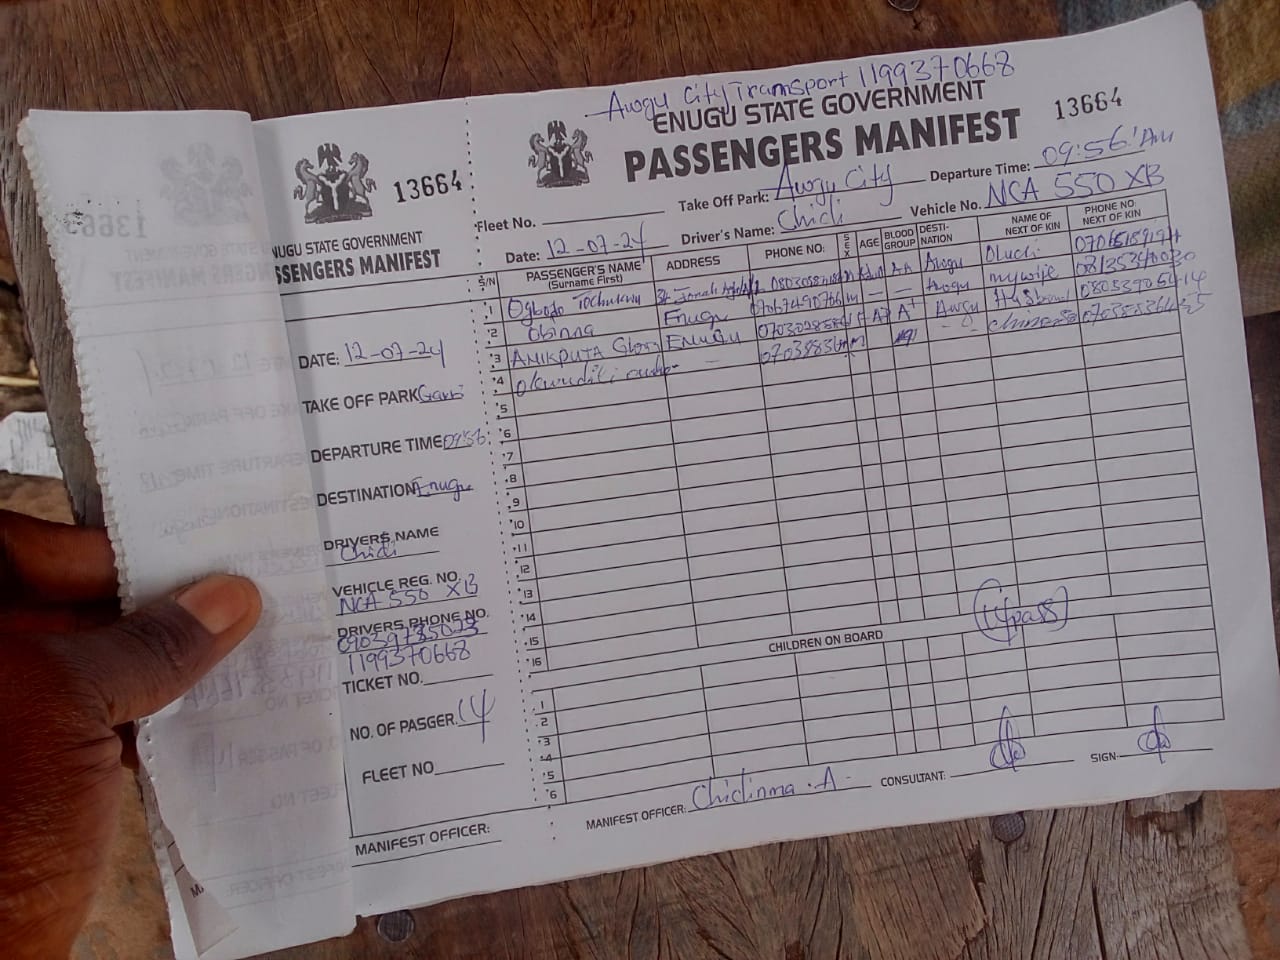 Awgu City Transport 1199370668
ENUGU STATE GOVERNMENT
PASSENGERS MANIFEST
13664
Fleet No.
Take Off Park: Awgu City
Departure Time: 09:56 Am
Date: 12-07-24
Driver's Name: Chidi
Vehicle No. NCA 550 XB
S/N
PASSENGER'S NAME (Surname First)
ADDRESS
PHONE NO:
SEX
AGE
BLOOD GROUP
DESTI-NATION
NAME OF NEXT OF KIN
PHONE NO: NEXT OF KIN
1 Ogbodo Tochukwu AA Awgu Oluchi
2 Obinna Enugu 07067490766 m — — Awgu my wife
3 ANIKPUTA Glory ENUGU A+ Awgu Husband
4 Okwudili —
5
6
7
8
9
10
11
12
13
14
15
16
14 pass
CHILDREN ON BOARD
1
2
3
4
5
6
MANIFEST OFFICER: Chidinma .A
CONSULTANT:
SIGN
13664
ENUGU STATE GOVERNMENT
PASSENGERS MANIFEST
DATE: 12-07-24
TAKE OFF PARK
DEPARTURE TIME 09:56
DESTINATION Enugu
DRIVERS NAME
Chidi
VEHICLE REG. NO.
NCA 550 XB
DRIVERS PHONE NO.
1199370668
TICKET NO.
NO. OF PASGER. 14
FLEET NO
MANIFEST OFFICER: